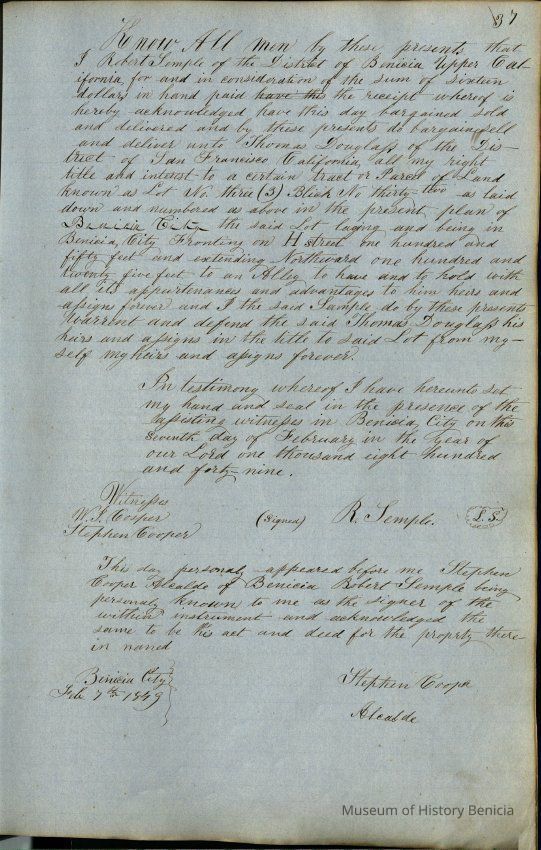 37
Know All men by these presents that
I Robert Semple of the District of Benicia Upper Cal-
ifornia for and in consideration of the sum of sixteen
dollars in hand paid have the the receipt whereof is
hereby acknowledged have this day bargained sold
and delivered and by these presents do bargain sell
and deliver unto Thomas Douglass of the Dis-
trict of San Francisco California all my right
title and interest to a certain tract or Parcel of Land
known as Lot No three (3) Block No thirty two as laid
down and numbered as above in the present plan of
Benicia City the said Lot laying and being in
Benicia City Fronting on H street one hundred and
fifty feet and extending Northward one hundred and
twenty five feet to an Alley to have and to hold with
all its appurtenances and advantages to him heirs and
assigns forever and I the said Semple do by these presents
Warrent and defend the said Thomas Douglass his
heirs and assigns in the title to said Lot from my-
self my heirs and assigns forever.
In testimony whereof I have hereunto set
my hand and seal in the presence of the
assisting witnesses in Benicia City on this
Seventh day of February in the year of
our Lord one thousand eight hundred
and forty-nine.
Witnesses
W. J. Cooper
(Signed) R. Semple. L.S.
Stephen Cooper
This day personaly appeared before me Stephen
Cooper Alcalde of Benicia Robert Semple being
personaly known to me as the signer of the
within instrument and acknowledged the
same to be his act and deed for the proprty there
in named
Benicia City
Feb 7th 1849
Stephen Cooper
Alcalde
Museum of History Benicia